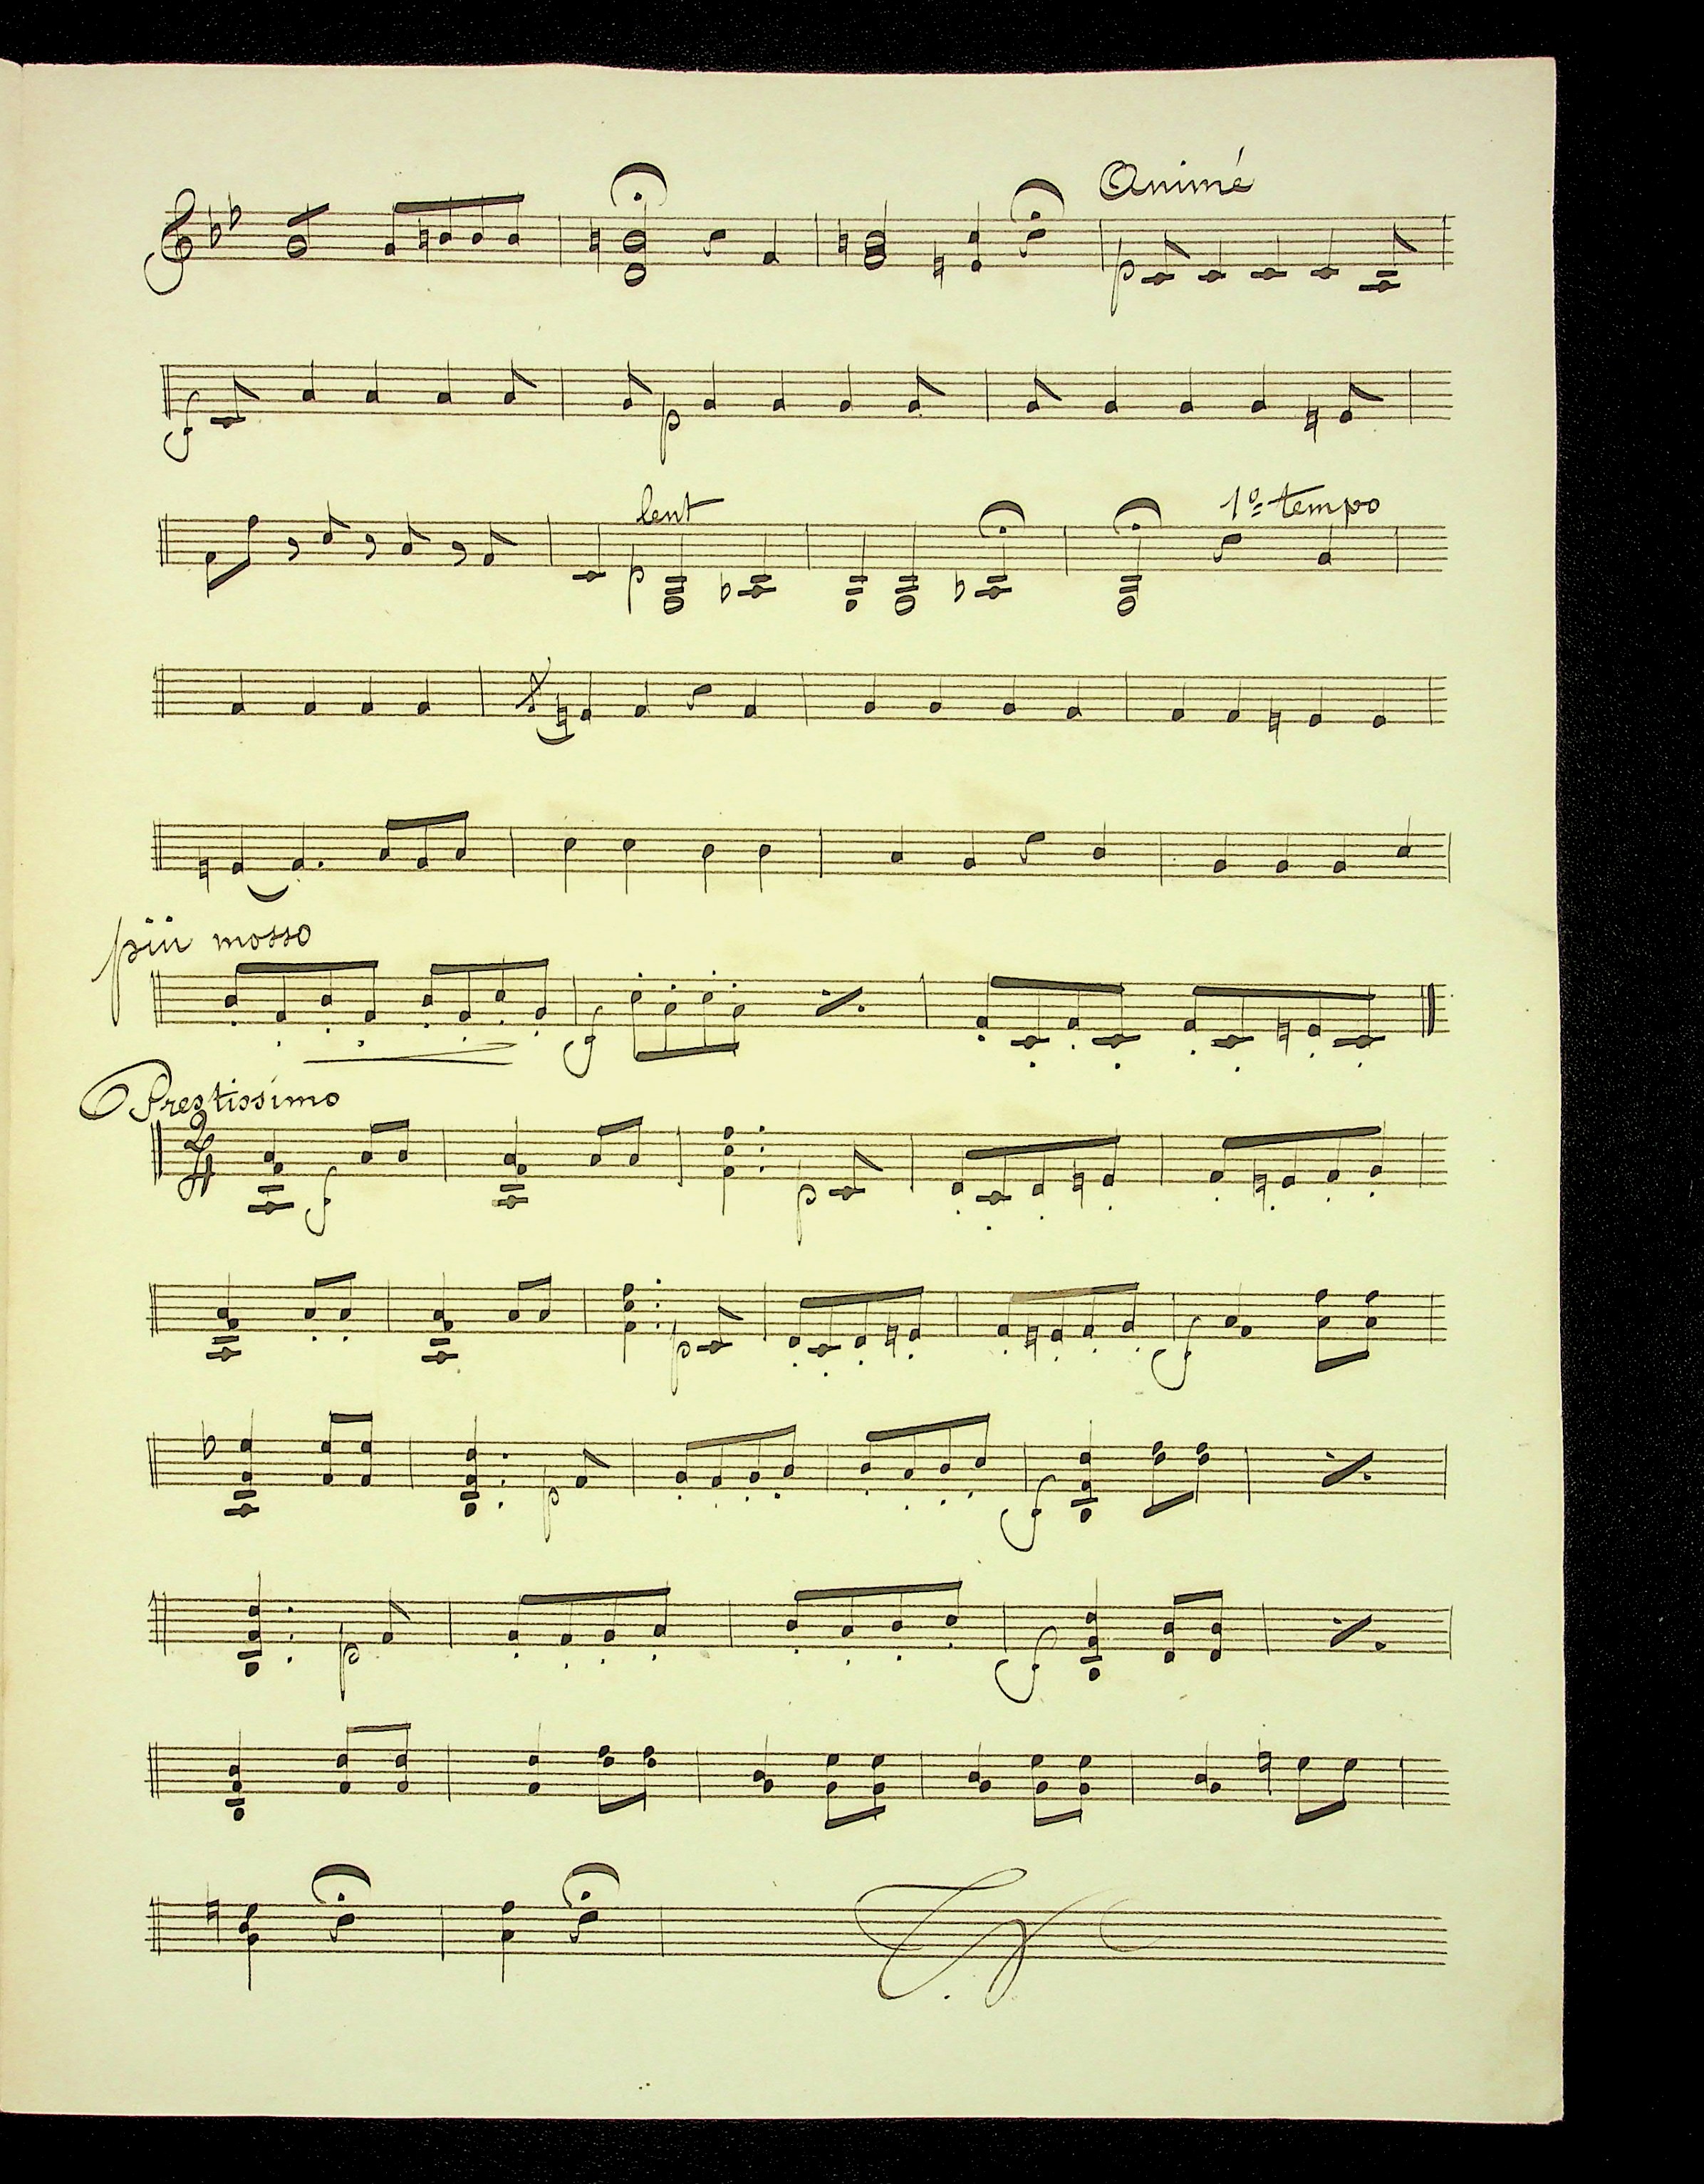 Animé
p
f p
lent 1º tempo
p
più mosso
f
Prestissimo
2
4
f p
p f
p f
p f